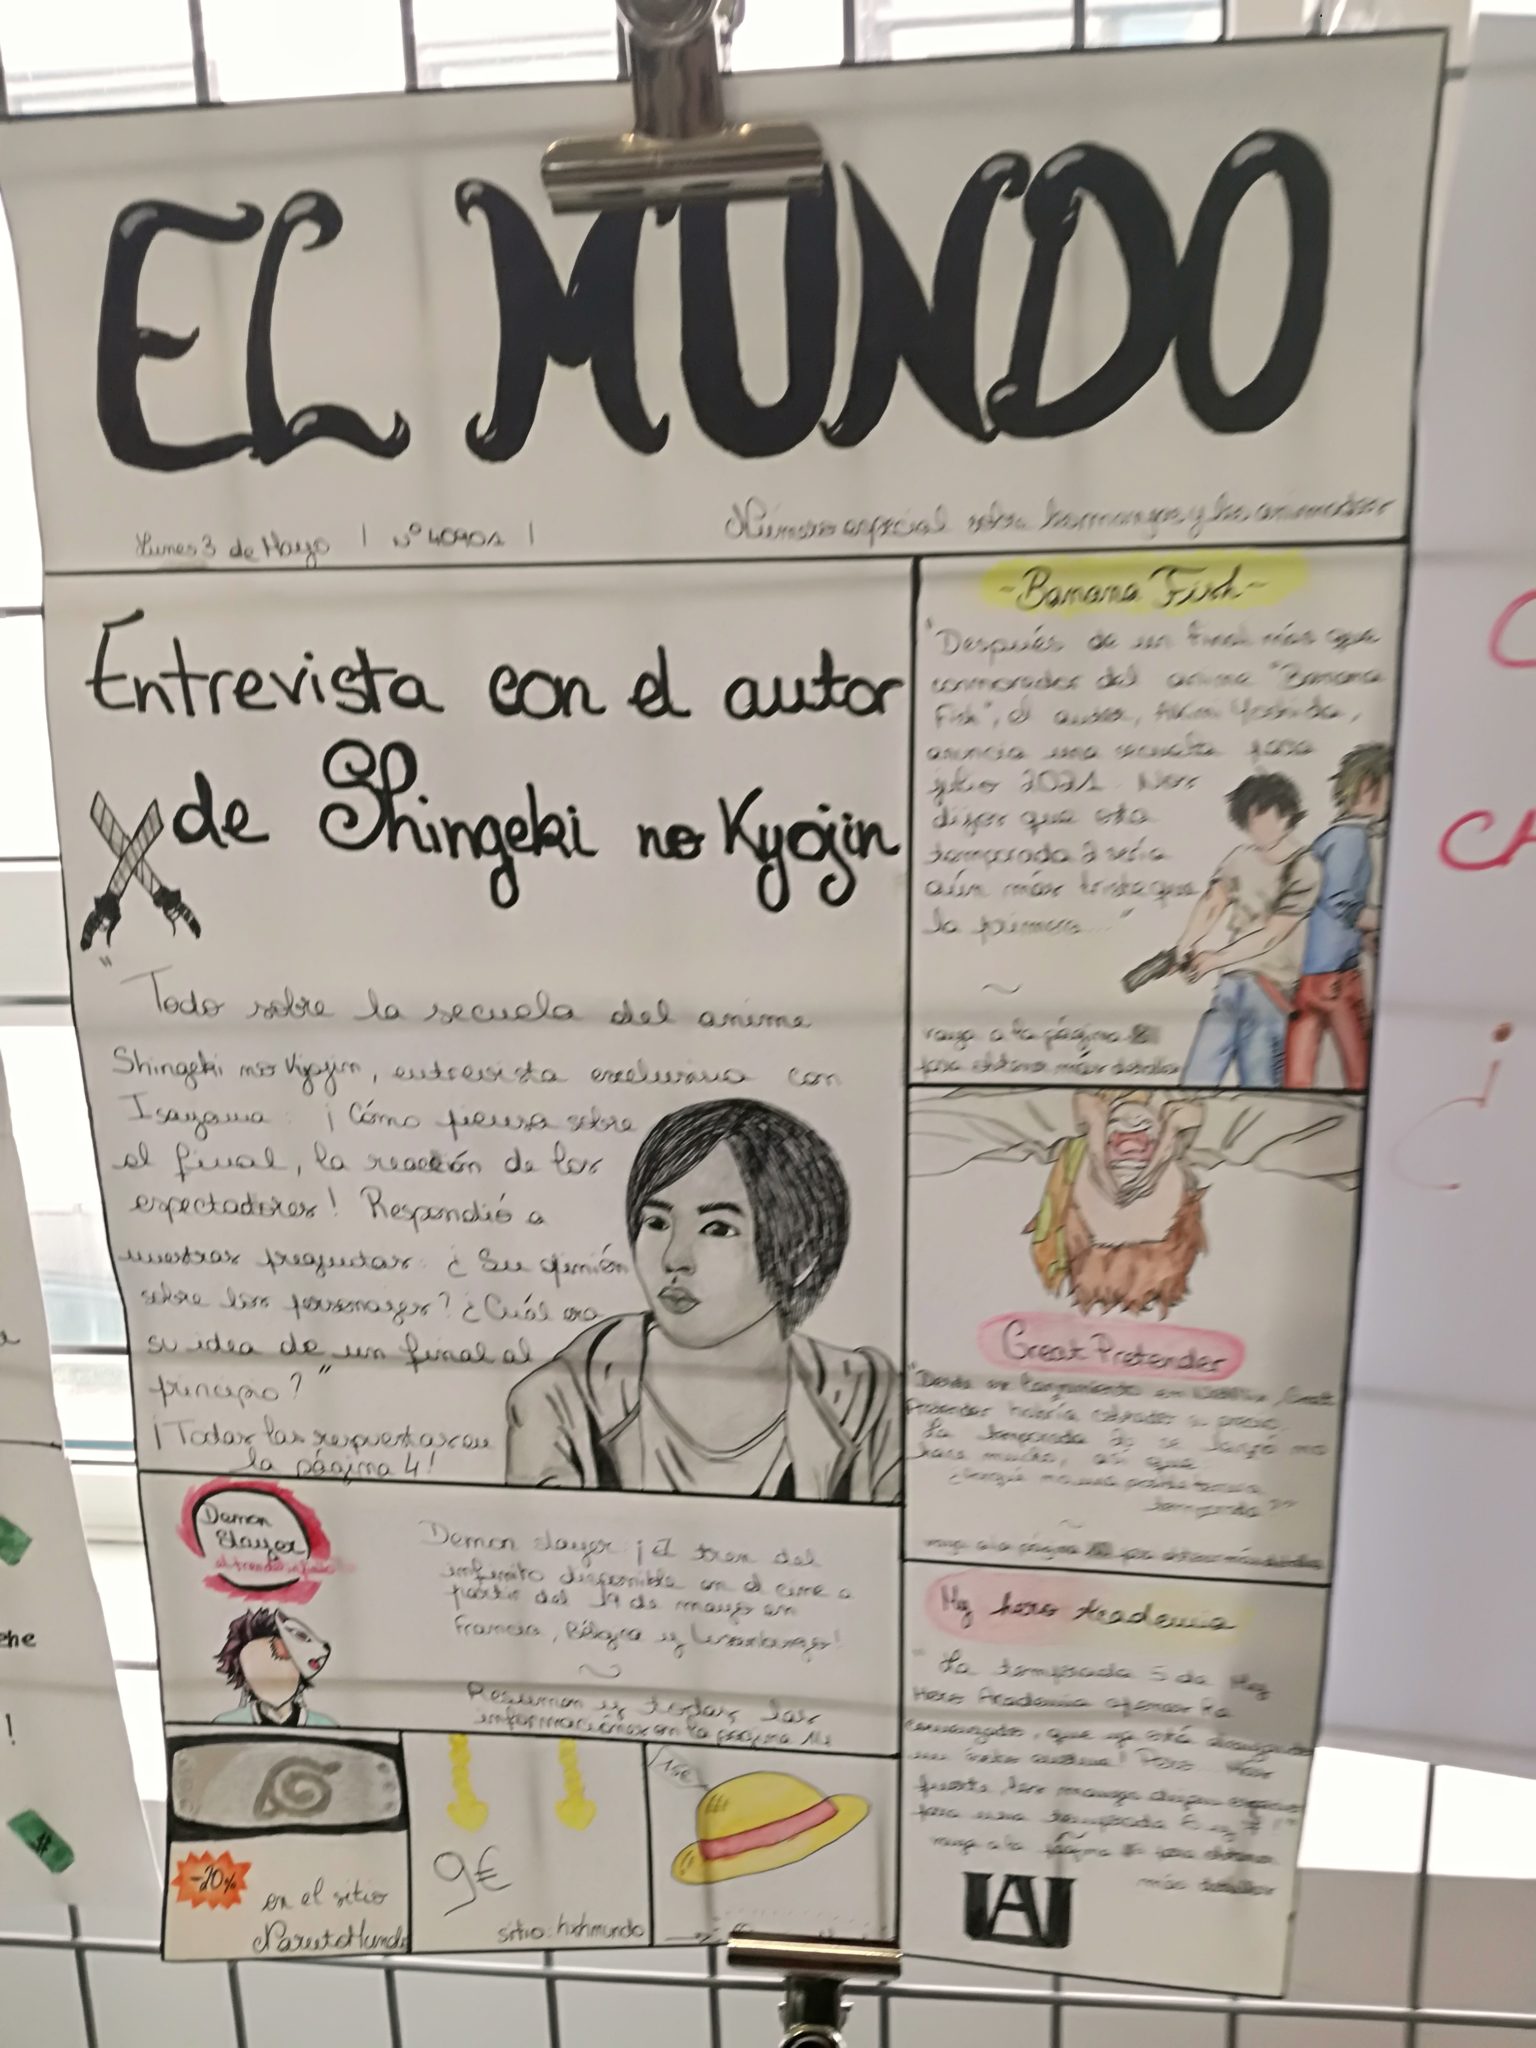 EL MUNDO
Lunes 3 de Mayo | Nº 40901 |
Número especial sobre los mangas y los animes
Entrevista con el autor
de Shingeki no Kyojin
"Todo sobre la secuela del anime
Shingeki no Kyojin, entrevista exclusiva con
Isayama: ¡Cómo piensa sobre
el final, la reacción de los
espectadores! Respondió a
nuestras preguntas: ¿Su opinión
sobre los personajes? ¿Cuál era
su idea de un final al
principio?"
¡Todas las respuestas en
la página 4!
-Banana Fish-
"Después de un final más que
conmovedor del anime "Banana
Fish", el autor, Akimi Yoshida,
anuncia una secuela para
julio 2021. Nos
dijo que esta
temporada 2 sería
aún más triste que
la primera..."
~
vaya a la página
para obtener más detalles
Great Pretender
"Desde su lanzamiento en Netflix, Great
Pretender habría
La temporada 2 se lanzó no
hace mucho, así que
temporada?"
~
vaya a la página para obtener más detalles
Demon
Slayer
el tren del infinito
Demon slayer: ¡El tren del
infinito disponible en el cine a
partir del 19 de mayo en
Francia, Bélgica y Luxemburgo!
~
Resumen y todas las
informaciónes en la página 14
My hero Academia
"La temporada 5 de My
Hero Academia apenas ha
comenzado, que ya está
un éxito
fuerte, los
para una temporada 6 y 7!"
vaya a la página para obtener
más detalles
UA
-20%
en el sitio
NarutoMundo
9€
sitio: hxhmundo
15€